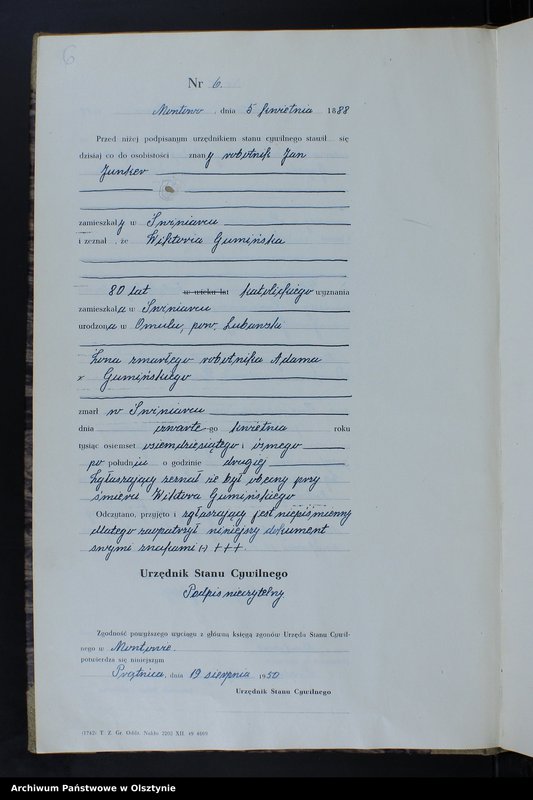 6
Nr 6.
Montowo, dnia 5 kwietnia 1888
Przed niżej podpisanym urzędnikiem stanu cywilnego stawił się
dzisiaj co do osobistości znany robotnik Jan
Junker
zamieszkały w
i zeznał, że Wiktoria Gumińska
80 lat w wieku lat katolickiego wyznania
zamieszkała w
urodzona w Omulu, pow. Lubawski
żona zmarłego robotnika Adama
x Gumińskiego
zmarł w
dnia czwarte-go kwietnia roku
tysiąc osiemset osiemdziesiątego i ósmego
po południu o godzinie drugiej
Zgłaszający zeznał że był obecny przy
śmierci Wiktora Gumińskiego
Odczytano, przyjęto i zgłaszający jest niepiśmienny
dlatego zaopatrzył niniejszy dokument
swymi znakami (-) +++.
Urzędnik Stanu Cywilnego
Podpis nieczytelny
Zgodność powyższego wyciągu z główną księgą zgonów Urzędu Stanu Cywil-
nego w Montowie
potwierdza się niniejszym
Prątnica, dnia 19 sierpnia 1950
Urzędnik Stanu Cywilnego
(1742) T. Z. Gr. Oddz. Nakło 2202 XII. 49 4009
Archiwum Państwowe w Olsztynie